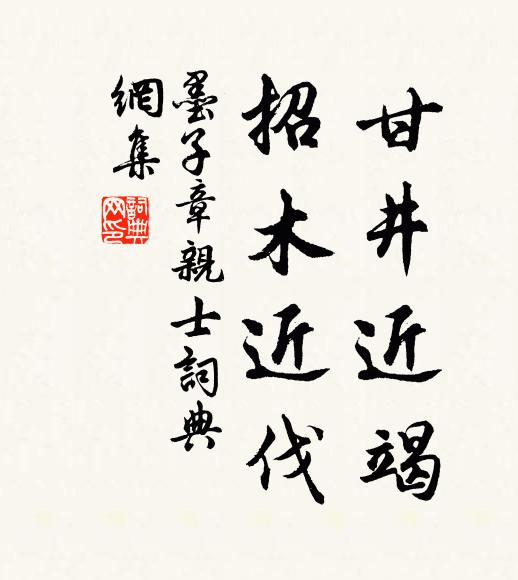 甘井近竭
招木近伐
墨子章親士詞典
網集
詞典
网印